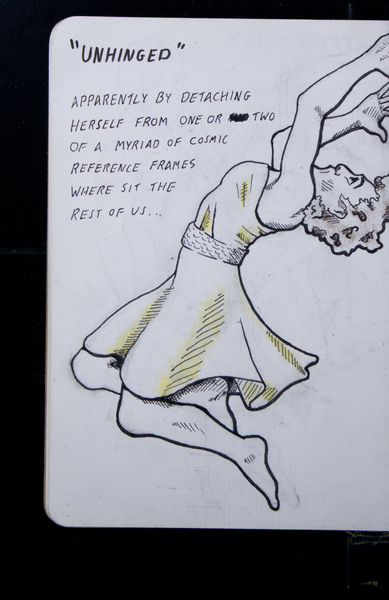 "UNHINGED"
APPARENTLY BY DETACHING
HERSELF FROM ONE OR TWO
OF A MYRIAD OF COSMIC
REFERENCE FRAMES
WHERE SIT THE
REST OF US...